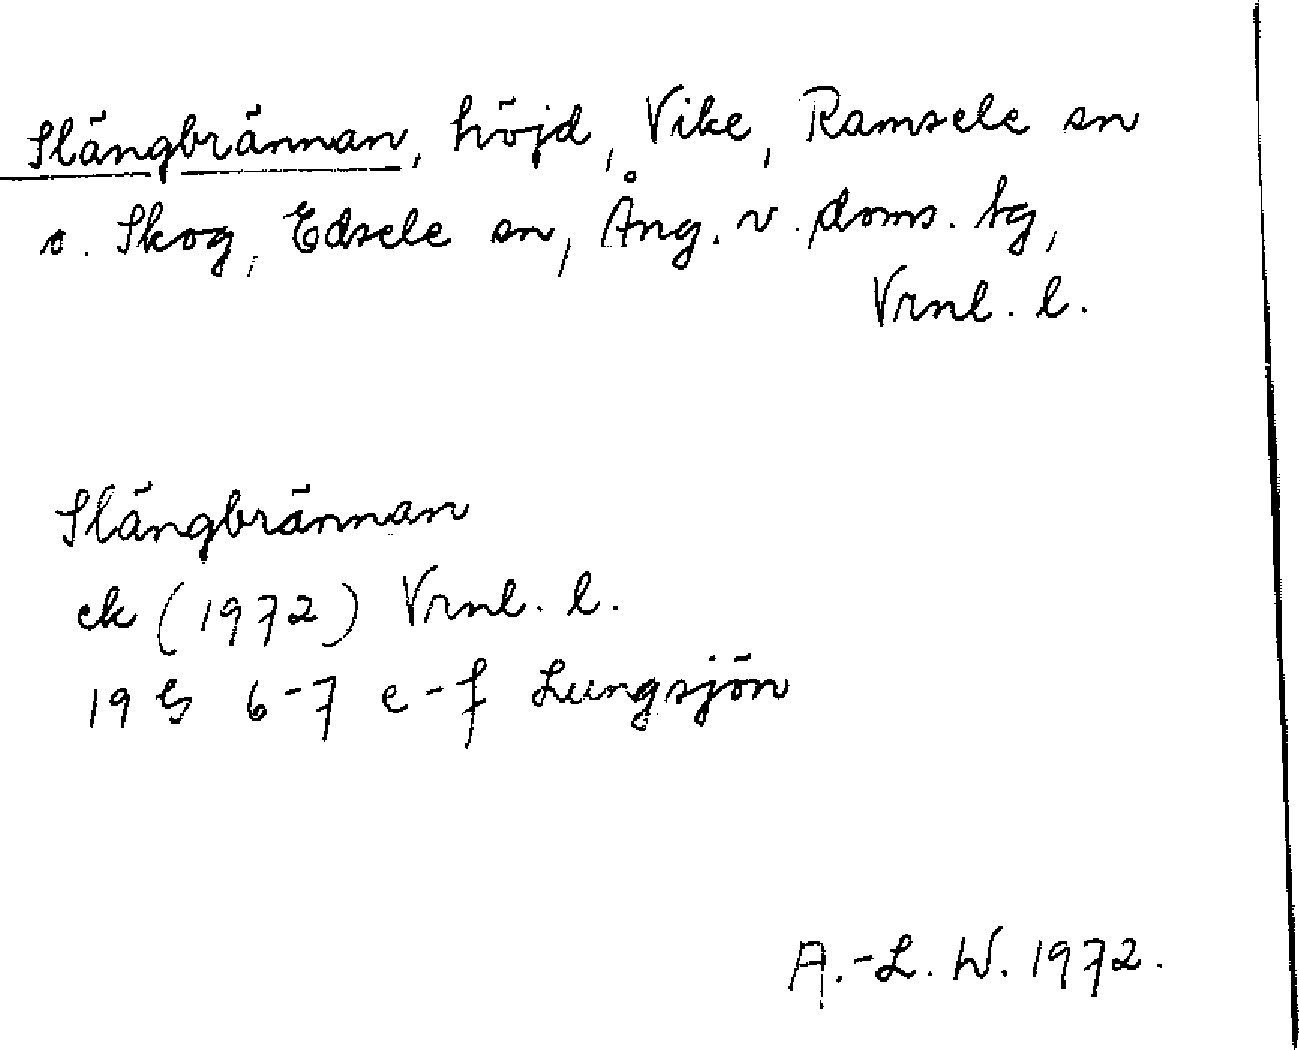 Slängbrännan, höjd, Vike, Ramsele sn
o. Skog, Edsele sn, Ång. v. doms. tg,
Vrnl. l.
Slängbrännan
ek (1972) Vrnl. l.
19 G 6-7 e-f Lungsjön
A.-L. W. 1972.